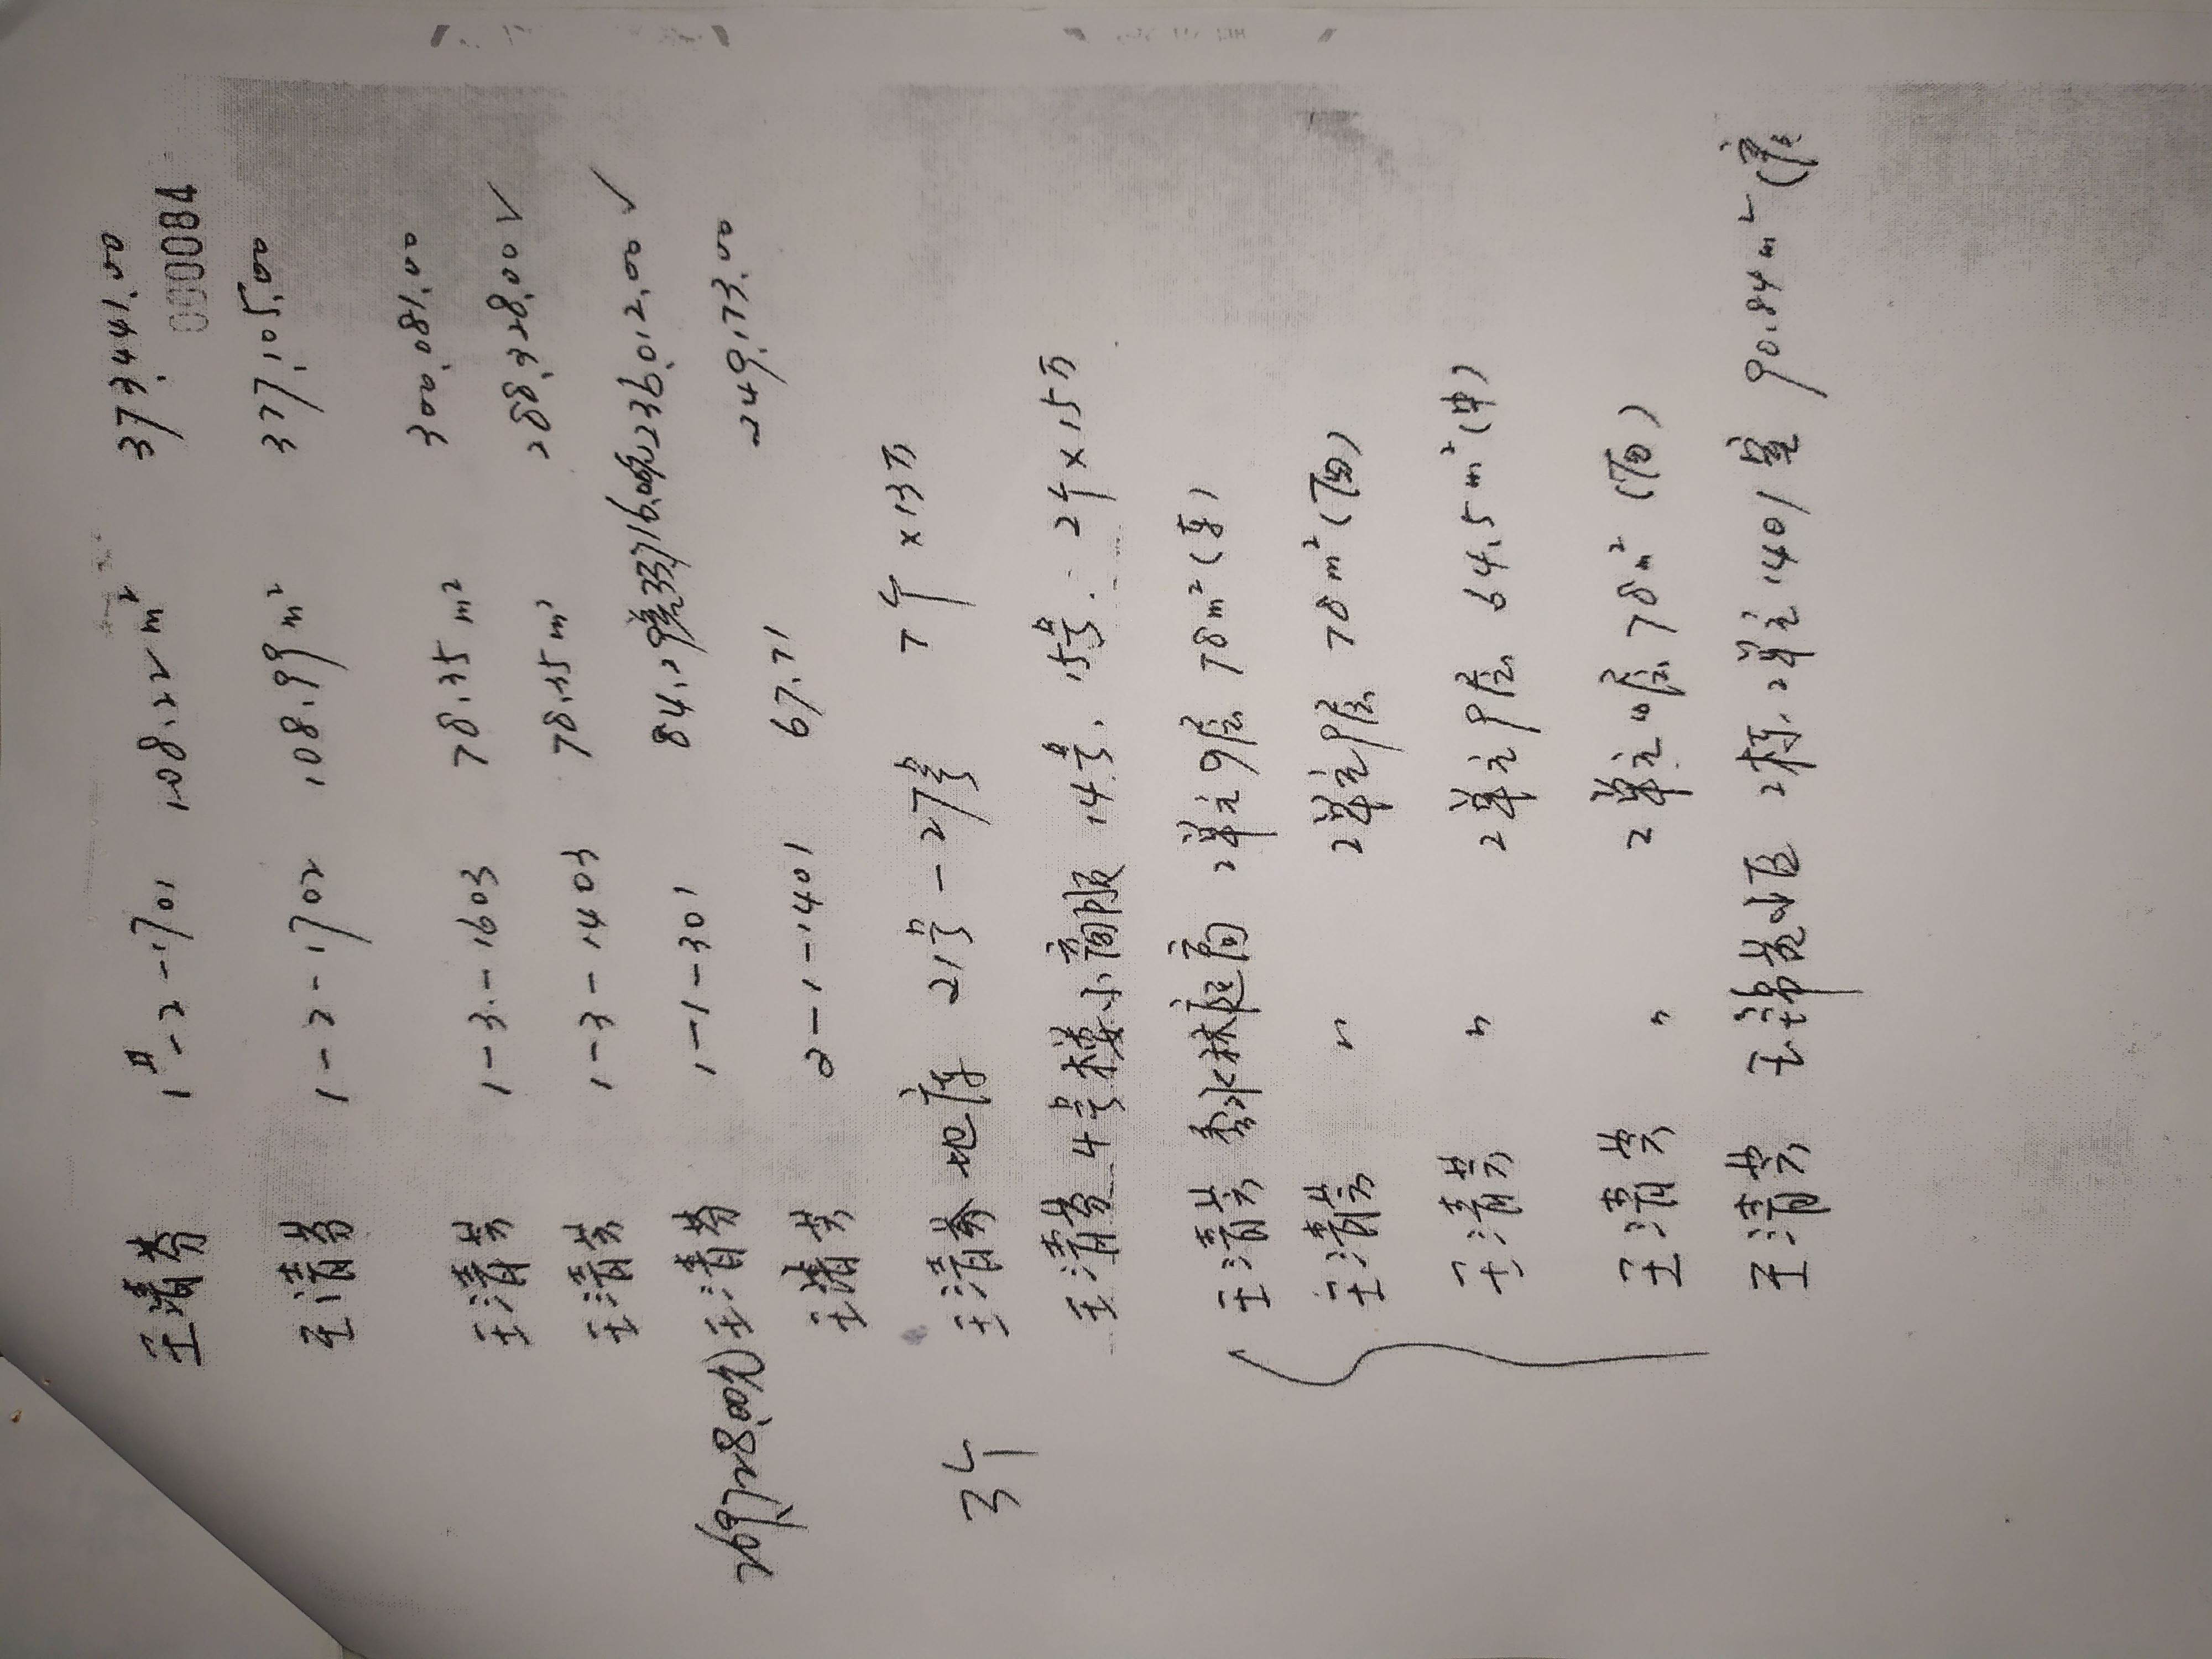 王清芬 1#-2-1701 108.22m² 373,441.00
000084
王清芬 1-2-1702 108.99m² 377,105.00
王清芳 1-3-1603 78.35m² 300,081.00
王清芳 1-3-1403 78.35m² 288,328.00√
269,728.00元 王清芬 1-1-301 84.29 差33,716.00元 236,012.00√
王清芳 2-1-1401 67.71 249,173.00
3个 王清芬 地库 21号-27号 7个×13万
王清芬 4号楼小商服 14号、15号. 2个×15万
王清芸 秀水林庭高 2单元9层 78m²(东)
王清芸 〃 2单元9层 78m²(西)
王清芸 〃 2单元9层 64.5m²(中)
王清芸 〃 2单元10层 78m²(西)
王清芸 玉锦苑小区 2栋.2单元1401室 90.84m²(